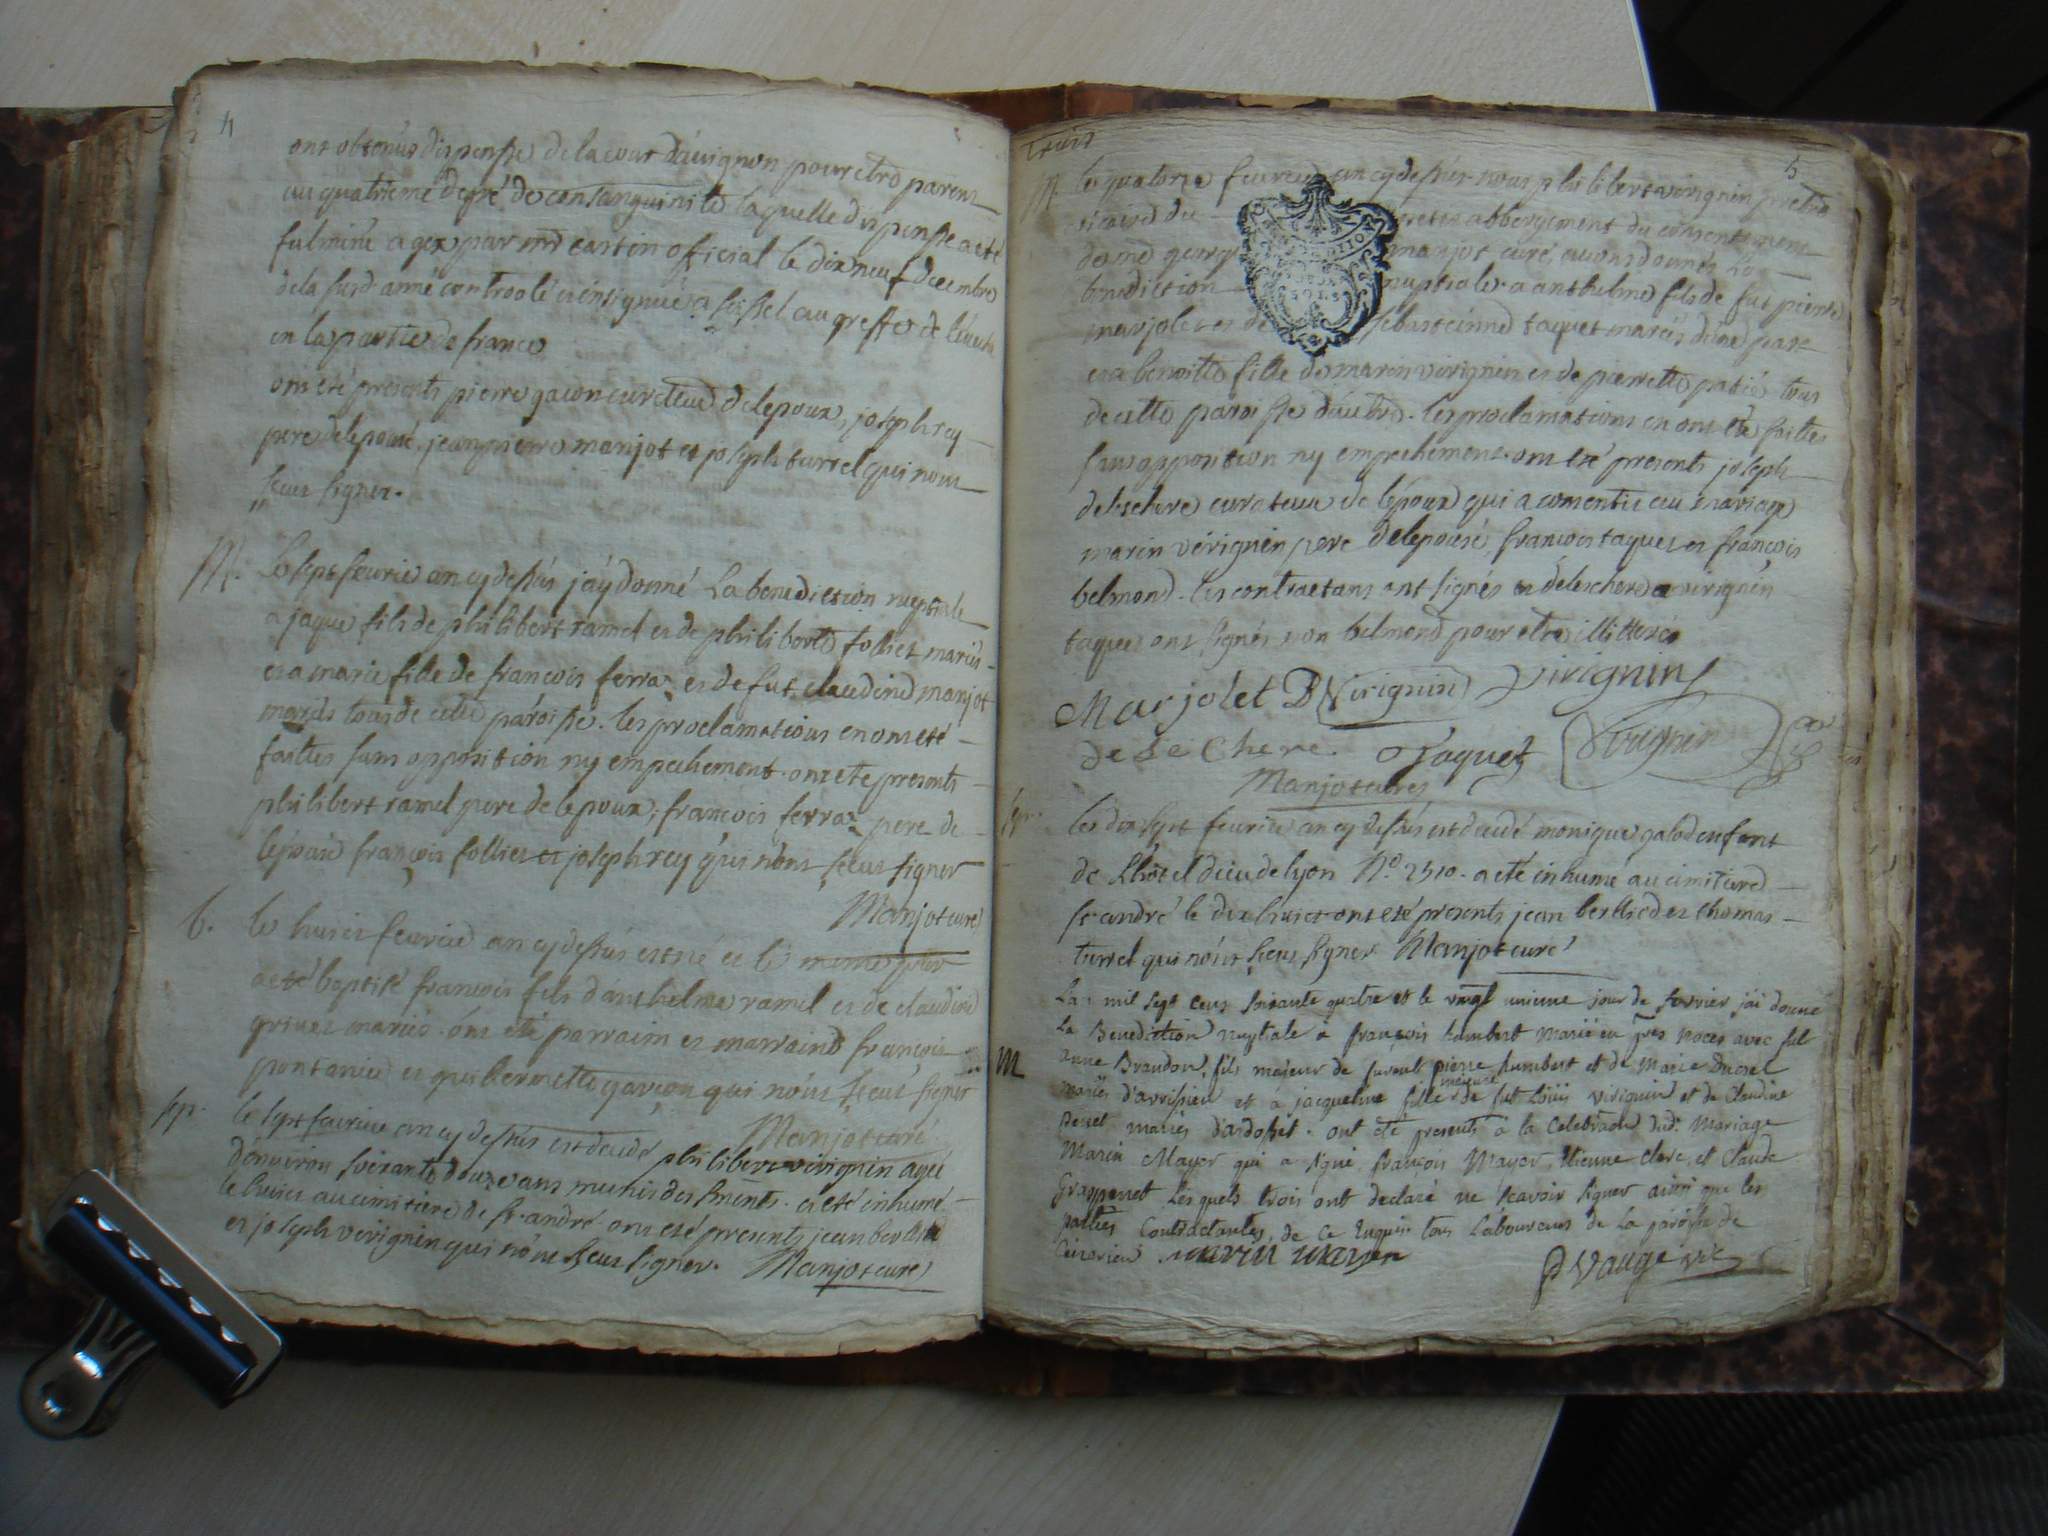 4
ont obtenus dispense de la cour d'avignon pour etre parens
au quatrieme degré de consanguinité laquelle dispense a eté
fulminé a gex par mr castin official le dix neuf decembre
de la susd. année controolé et insignué a seissel au greffe de
en la partie de france
ont eté presents pierre gacon curateur de lepoux, joseph rey
pere delepouse, jean pierre manjot et joseph turrel qui nont
sceus signer.
M. Le sept feurier an cy dessus jáy donné La benediction nuptiale
a jaque fils de philibert ramel et de philiberte folliet mariés
et a marie fille de francois ferraz et de fut claudine manjot
mariés tous de cette paroisse. les proclamations en ont eté
faittes sans opposition ny empechement. ont eté presents
philibert ramel pere de lepoux, francois ferraz pere de
lépouse françois folliet et joseph rey qui nont sceus signer
Manjot curé
b. le huit feurier an cy dessus est né et le meme jour
a eté baptisé francois fils danthelme ramel et de claudine
grinet mariés. ont eté parrain et marraine françois
pontanier et guillermette gavçon qui nónt sceus signer
Manjot curé
sep. le sept feurier an cy dessus est decedé philibert virignin agé
dénviron soixante douze ans munis des sments. a eté inhumé
le huit au cimitiere de st. andré. ont eté presents jean berlliod
et joseph virignin qui nónt sceus signer. Manjot curé
5
M. les quatorze feurier an cy dessus nous philibert virignin pretre
vicaire du abbergement du consentement
de me george manjot curé, auons donnés La
benediction nuptiale a anthelme fils de fut pierre
marjolet et de sebastienne taquet mariés dune part
et a benoitte fille de maren virignin et de pierrette patié tous
de cette paroisse d'autre. les proclamations en ont eté faittes
sans opposition ny empechement. ont eté presents joseph
deleschere curateur de lépoux qui a consentis au mariage
marin virignin pere delepouse, francois taquet et françois
belmond. les contractans ont signés et delescheres virignin
taquet ont signés non belmond pour etre illitteré
Marjolet B Virignin Virignin
de Le Chere F Taquet Virignin
Manjot curé
sep. les dix sept feurier an cy dessus est decedé monique galo enfant
de Lhotel dieu de lyon No. 2510. a eté inhumé au cimitiere
st andré le dix huict ont eté presents jean berlliod et thomas
turrel qui nónt sceus signer Manjot curé
Lan mil sept cens soixante quatre et le vingt unieme jour de fevrier jai donné
La Benediction nuptiale à françois humbert marié en pres noces avec fut
M anne Brandon, fils majeur de furent pierre humbert et de Marie Ducret
mariés d'avrissieu et a jacqueline fille mineure de fut Loüis virignin et de Claudine
Penet mariés d'ardosset. ont eté presents a la Celebraon dud. Mariage
Marin Mayer qui a signé, françois Mayer, Etienne Clerc, et Claude
Graspenet Lesquels trois ont declaré ne scavoir signer ainsi que les
parties Contractantes, de ce Enquis tous Laboureurs de La paroisse de
Ceizerieu. marin mayer P Vauge vic